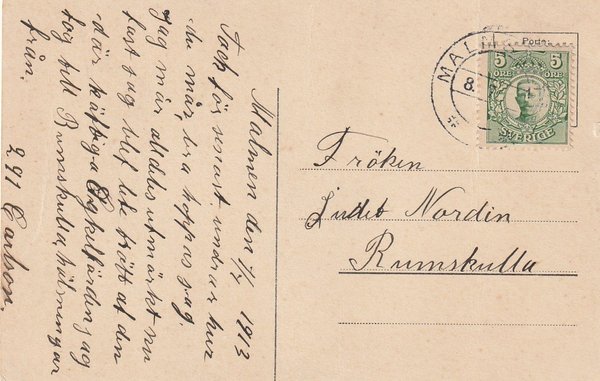 Malmen den 7/7 1913
Tack för senast undrar hur
du mår, bra hoppas jag.
Jag mår alldeles utmärkt nu
fast jag blef lite trött af den
där häftiga Cykelfärden jag
tog till Rumskulla, hälsningar
från.
291 Carlson.
MALM
8.
Porto
5 5
ÖRE ÖRE
SVERIGE
Fröken
Judit Nordin
Rumskulla